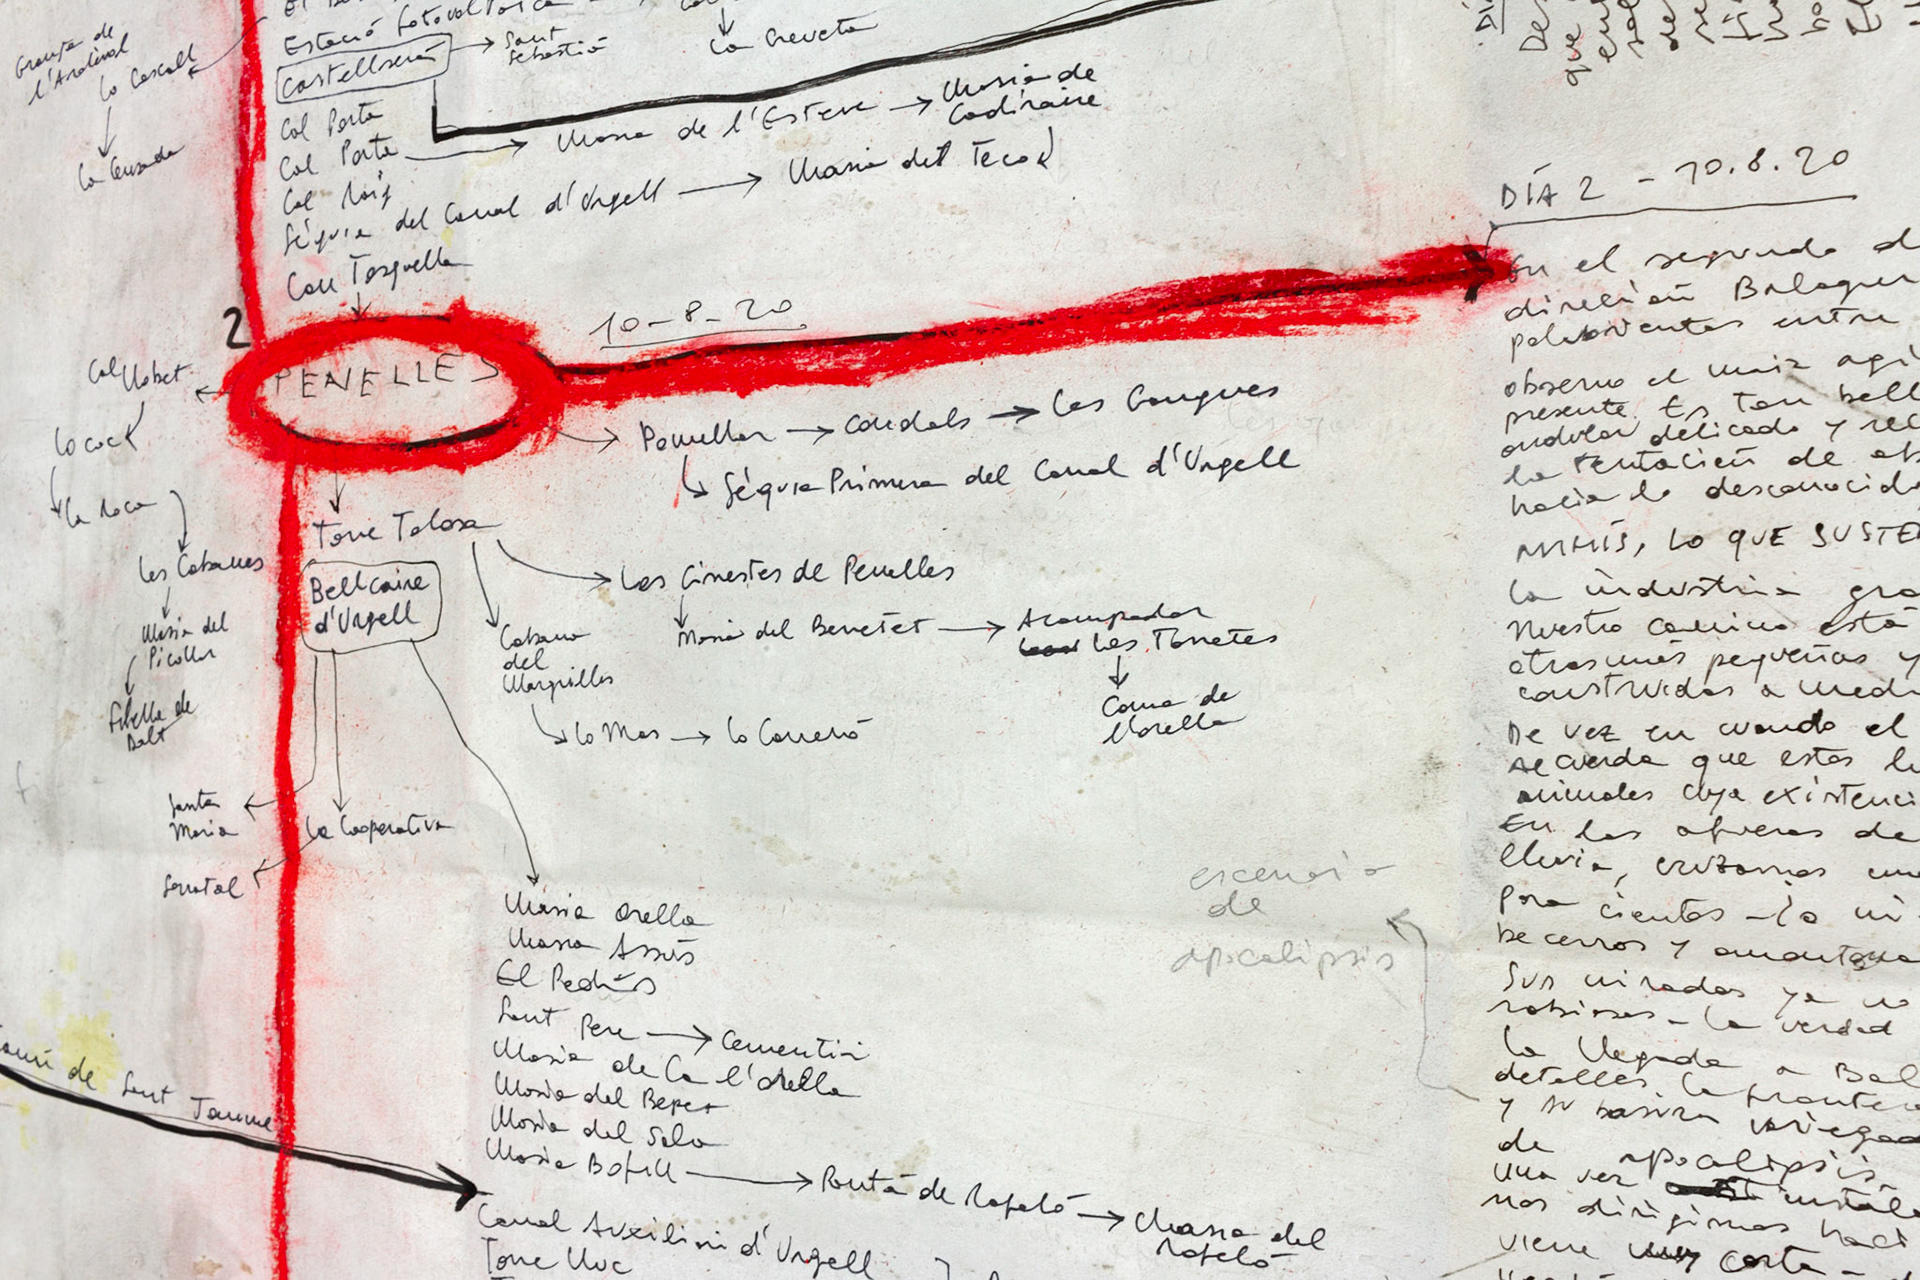 Granja de
l'Ardèvol
Lo Cascall
La Cerrada
Estació fotovoltaica
Castellserà
Sant
Sebastià
La Creveta
Cal Porta
Cal Porta
Masia de l'Esteve
Masia de
Cadiraire
Masia del Teco
Cal Roig
Séquia del Canal d'Urgell
Can Tarquella
2
PENELLES
10-8-20
Cal Llobet
Lo cock
La Roca
Les Cabanes
Masia del
Picollor
Sibella de
Dalt
Penellar
Coudals
Les Gangues
Séquia Primera del Canal d'Urgell
Torre Talosa
Bellcaire
d'Urgell
Les Ginestes de Penelles
Masia del Benetet
Acampador
Les Torretes
Coma de
Cabana
del
Marquilles
Lo Mas
Lo Carreró
Santa
Maria
La Cooperativa
Serratal
Masia Orella
Masia Assis
El Pedrís
Sant Pere
Cementiri
Masia de Ca l'Orella
Masia del Bepet
Masia del Sala
Masia Bofill
Punta de Rafeló
Massa del
Rafeló
de Sant Jaume
Canal Auxiliar d'Urgell
Torre Lluc
escenario
de
apocalipsis
DÍA 2 - 10.8.20
En el segundo d
dirección Balaguer
polvorientas entre
observo el maiz agi
presente. Es tan bell
ondular delicado y
la tentación de ob
hacia lo desconocido
MAÍS, LO QUE SUSTE
La industria gra
Nuestro camino está
otras más pequeñas y
construidas a medi
De vez en cuando el
recuerda que estas
animales cuya existenci
En las afueras de
lluvia, cruzamos una
para cientos
becerros y amontona
Sus miradas ya no
la verdad
La llegada a Bal
detalles. La frontera
y su basura
de apocalipsis
Una vez
nos dirigimos haci
viene muy corta